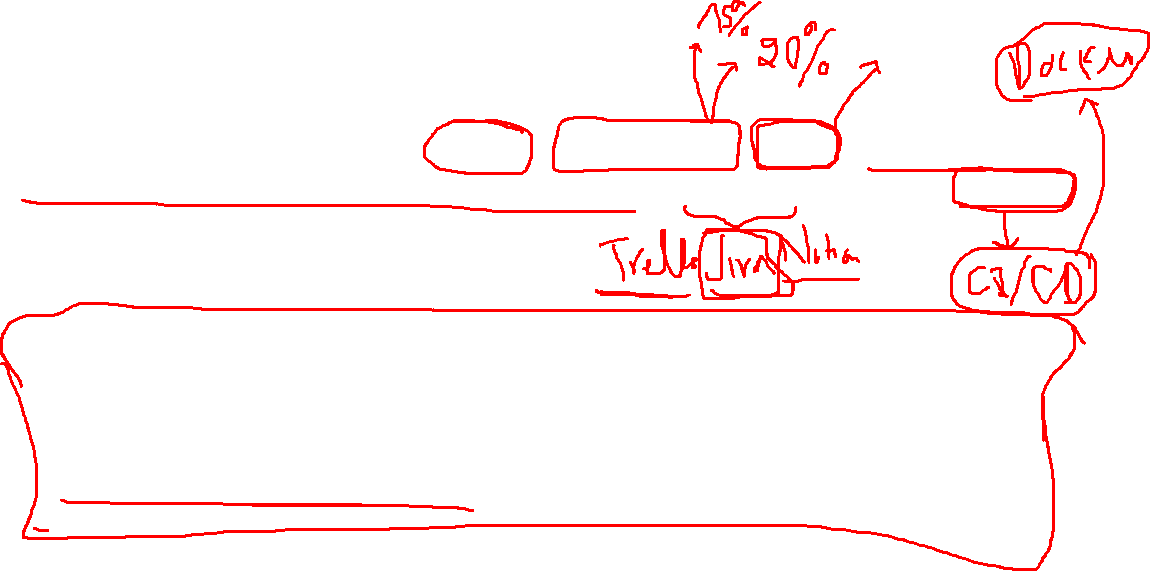 15%
20%
Docker
Trello Jira Notion
CI/CD